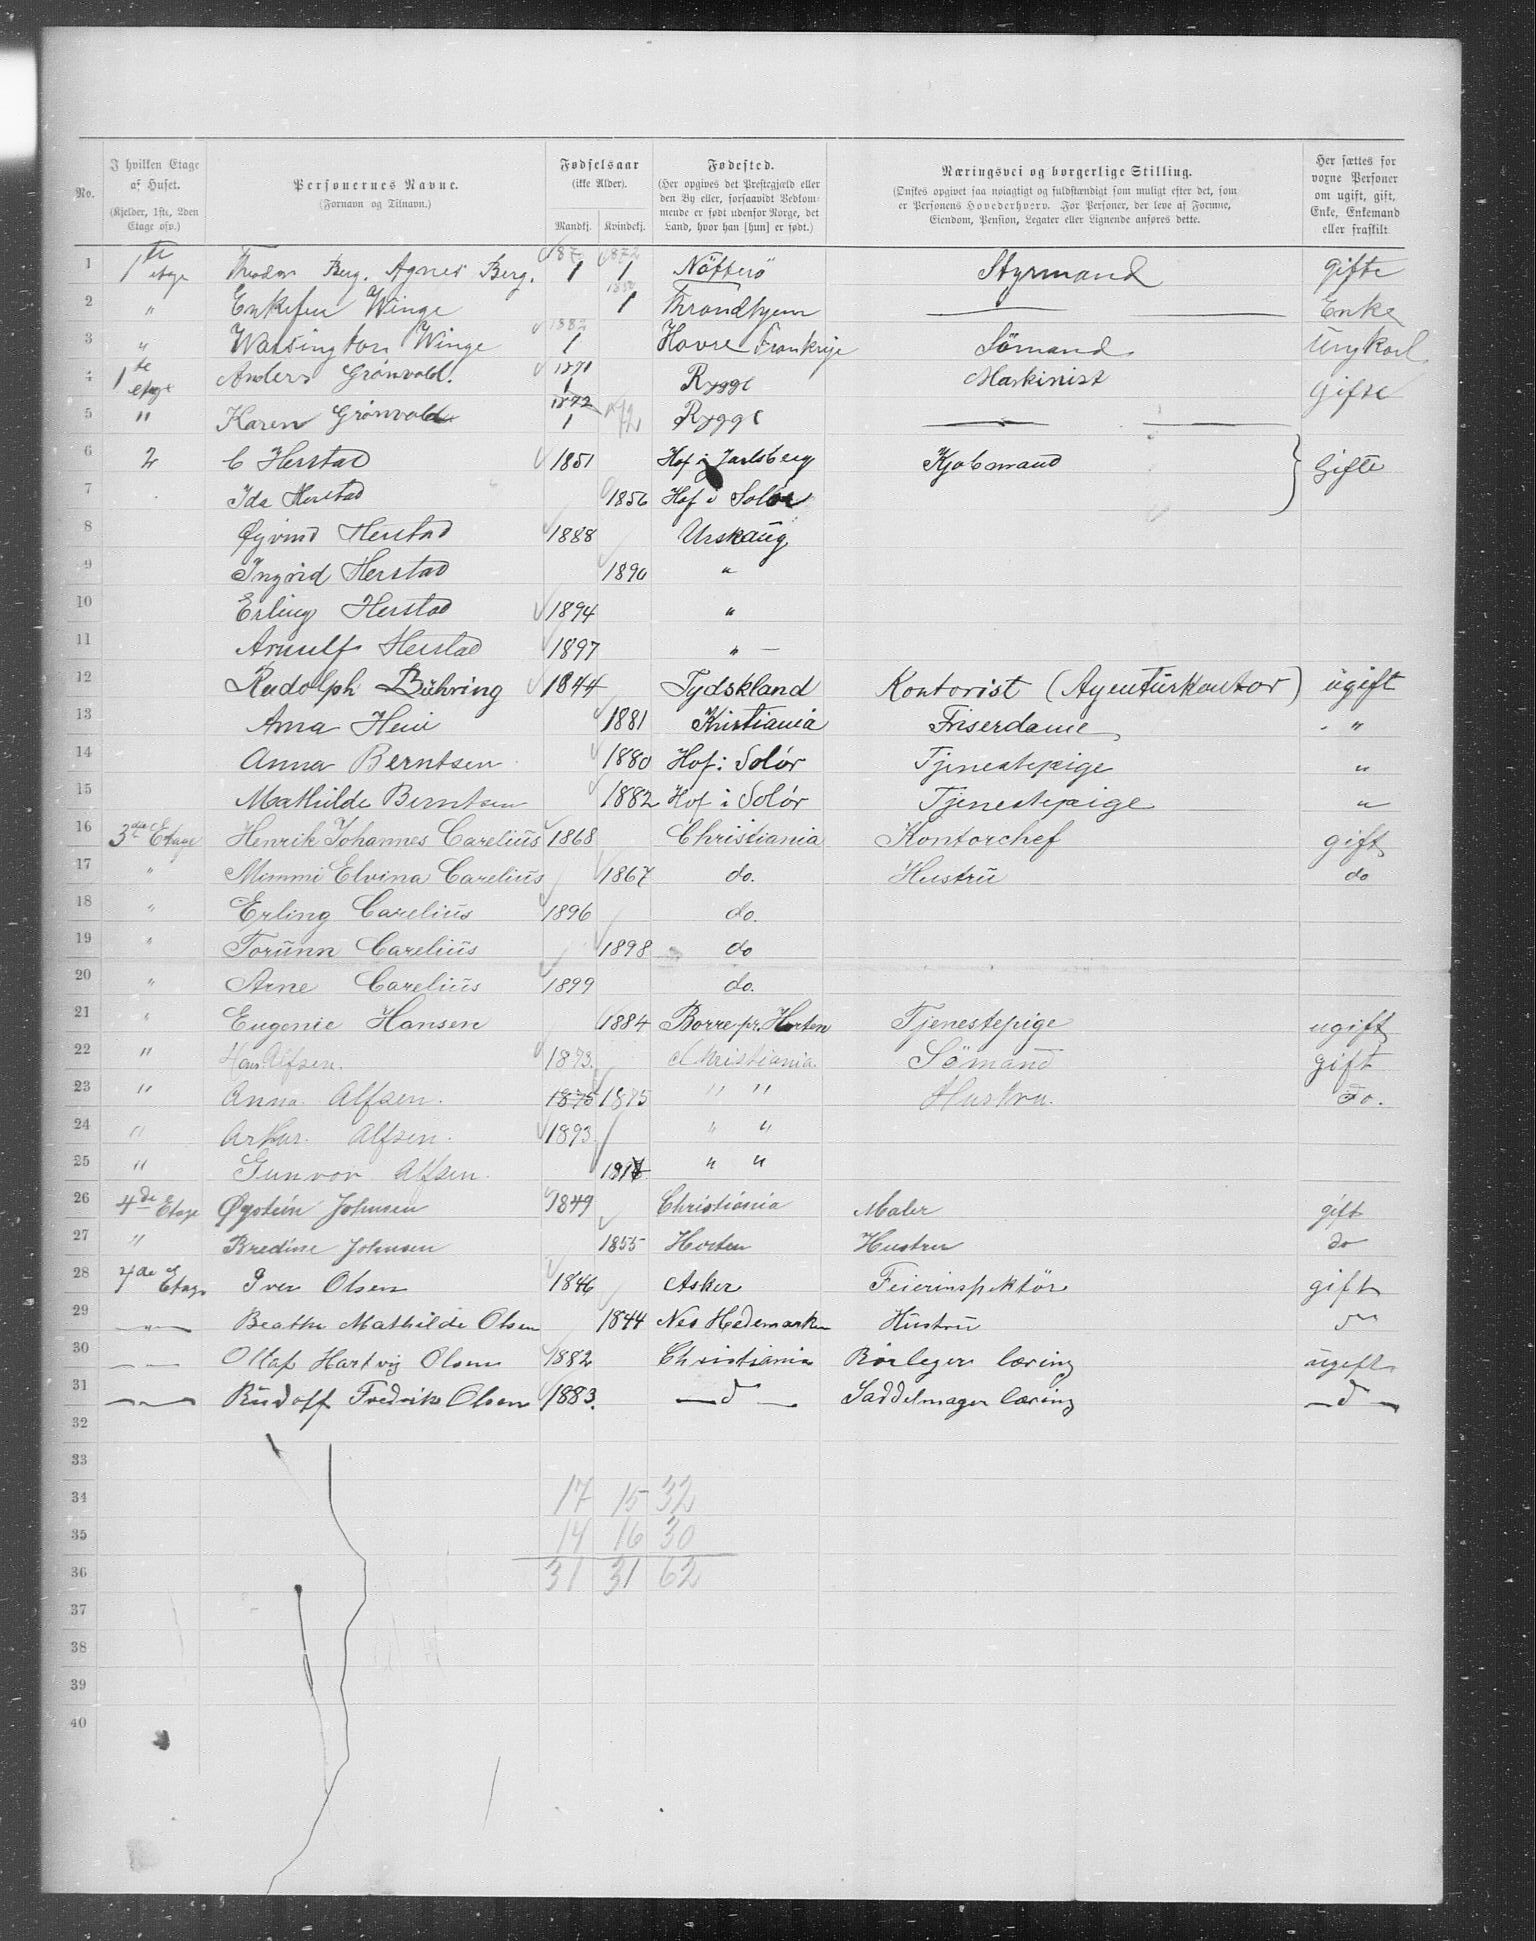 No. | I hvilken Etage af Huset. (Kjelder, 1ste, 2den Etage osv.) | Personernes Navne. (Fornavn og Tilnavn.) | Fødselsaar (ikke Alder). Mandkj. | Kvindekj. | Fødested. (Her opgives det Prestegjæld eller den By eller, forsaavidt Vedkommende er født udenfor Norge, det Land, hvor han [hun] er født.) | Næringsvei og borgerlige Stilling. (Ønskes opgivet saa nøiagtigt og fuldstændigt som muligt efter det, som er Personens Hovederhverv. For Personer, der leve af Formue, Eiendom, Pension, Legater eller Lignende anføres dette.) | Her sættes for voxne Personer om ugift, gift, Enke, Enkemand eller fraskilt
1 | 1te etage | Theodor Berg. Agnes Berg. | 187 1 | 1872 1 | Nötterö | Styrmand | gifte
2 | " | Enkefru Winge | | 1850 1 | Throndhjem | — | Enke
3 | " | Wassington Winge | 1882 1 | | Havre Frankrige | Sömand | Ungkarl
4 | 1te etage | Anders Grönvold. | 1871 1 | | Rygge | Maskinist | gifte
5 | " | Karen Grönvold | 1872 1 | 1872 | Rygge | — |
6 | 2 | C Herstad | 1851 | | Hof i Jarlsberg | Kjøbmand | Gifte
7 | | Ida Herstad | | 1856 | Hof i Solør
8 | | Øyvind Herstad | 1888 | | Urskaug
9 | | Ingrid Herstad | | 1890 | "
10 | | Erling Herstad | 1894 | | "
11 | | Arnulf Herstad | 1897 | | " —
12 | | Rudolph Bühring | 1844 | | Tydskland | Kontorist (Agenturkontor) | ugift
13 | | Anna Heni | | 1881 | Kristiania | Friserdame | "
14 | | Anna Berntsen | | 1880 | Hof i Solør | Tjenestepige | "
15 | | Mathilde Berntsen | | 1882 | Hof i Solør | Tjenestepige | "
16 | 3die Etage | Henrik Johannes Carelius | 1868 | | Christiania | Kontorchef | gift
17 | " | Mimmi Elvina Carelius | | 1867 | do. | Hustru | do
18 | " | Erling Carelius | 1896 | | do.
19 | " | Torunn Carelius | | 1898 | do
20 | " | Arne Carelius | 1899 | | do.
21 | " | Eugenie Hansen | | 1884 | Borre pr. Horten | Tjenestepige | ugift
22 | " | Hans Alfsen. | 1873. | | Christiania. | Sömand | gift
23 | " | Anna Alfsen. | 1875 | 1875 | " " | Hustru. | Do.
24 | " | Arthur. Alfsen. | 1893. | | " "
25 | " | Gunvor Alfsen. | | | " "
26 | 4de Etage | Øystein Johnsen | 1849 | | Christiania | Maler | gift
27 | " | Bredine Johnsen | | 1855 | Horten | Hustru | do
28 | 4de Etage | Iver Olsen | 1846 | | Asker | Feierinspektör | gift
29 | —"— | Beathe Mathilde Olsen | | 1844 | Nes Hedemarken | Hustru | do
30 | — — | Olaf Hartvig Olsen | 1882 | | Christiania | Rörlegger læring | ugift
31 | —"— | Rudolf Fredrik Olsen | 1883. | | —d— | Saddelmager læring | —d—
32
33
34 | | | 17 | 15 | 32
35 | | | 14 | 16 | 30
36 | | | 31 | 31 | 62
37
38
39
40